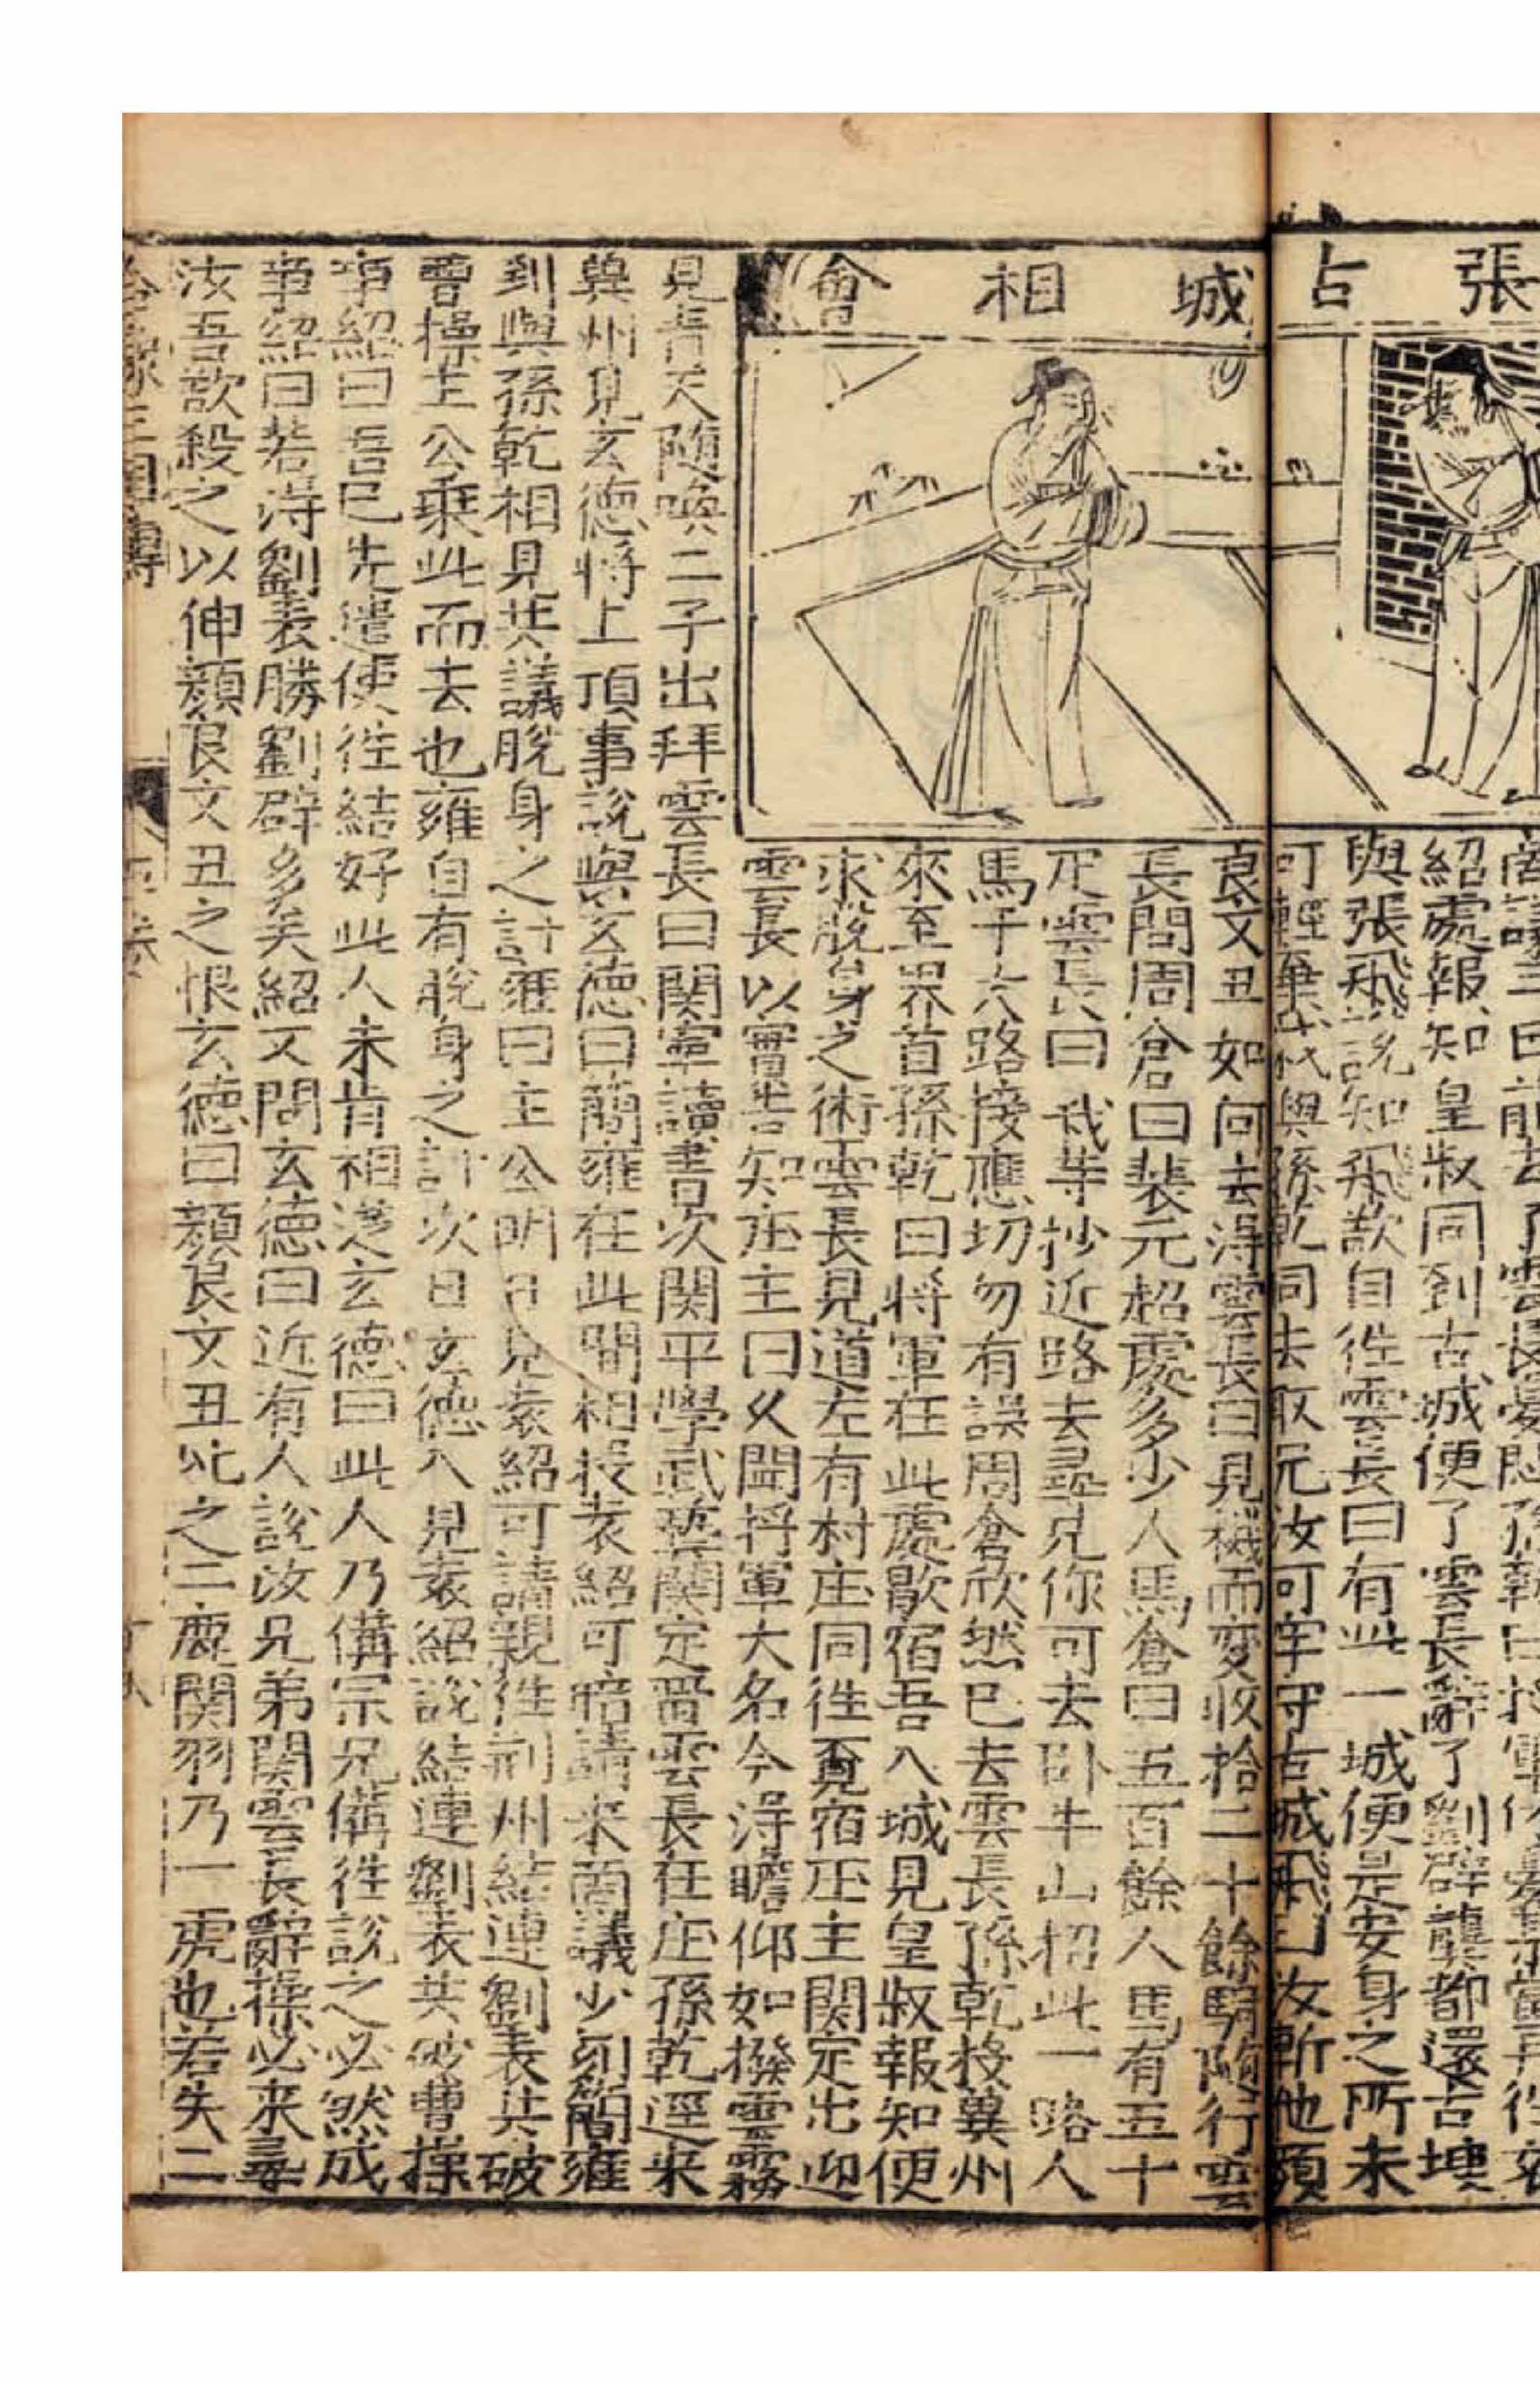 張占城相會
紹處報知皇叔同到古城便了雲長辭了劉辟龔都還古
與張飛說知飛欲自徃雲長曰有此一城便是安身之所未
可輕棄我與孫乾同去取兄汝可牢守古城飛曰汝斬他顏
良文丑如何去淂雲長曰見機而变收拾二十餘騎隨行雲
長問周倉曰裴元超處多少人馬倉曰五百餘人馬有五十
疋雲長曰我等抄近路去尋兄你可去卧牛山招此一路人
馬于六路接應切勿有誤周倉欣然已去雲長孫乾投兾州
來至界首孫乾曰将軍在此處歇宿吾入城見皇叔報知便
求脫身之術雲長見道左有村庄同徃覔宿庄主関定出迎
雲長以實告知庄主曰久聞将軍大名今淂瞻仰如撥雲霧
見青天随喚二子出拜雲長曰関寧讀書次関平學武藝関定畱雲長在庄孫乾逕来
兾州見玄德将上項事說與玄德曰簡雍在此間相投袁紹可暗請来商議少刻簡雍
到與孫乾相見共議脫身之計雍曰主公明日見袁紹可請親徃荆州結連劉表共破
曹操主公乗此而去也雍自有脫身之計次日玄德入見袁紹說結連劉表共破曹操
事紹曰吾已先遣使徃結好此人未肯相從玄德曰此人乃備宗兄備徃說之必然成
事紹曰若淂劉表勝劉辟多矣紹又問玄德曰近有人說汝兄弟関雲長辭操必来尋
汝吾欲殺之以伸顏良文丑之恨玄德曰顏良文丑比之二鹿関羽乃一虎也若失二
三國傳